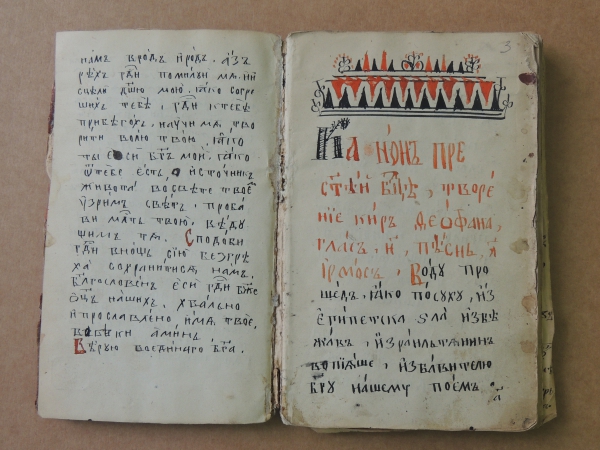 намъ врѡдъ и҆родъ. а҆зъ
рѣхъ гдⷭ҇и помилꙋй мѧ. и҆
сцѣли дш҃ꙋ мою. ꙗ҆́ко согрѣ
шихъ тебѣ, гдⷭ҇и к тебѣ
прибѣгохъ, наꙋчи мѧ тво
рити волю твою. ꙗ҆́ко
ты е҆си бг҃ъ мой. ꙗ҆́ко
ѿ тебе есть, источникъ
живота во свѣте твое҆
ꙋзримъ свѣтъ. проба
ви млⷭ҇ть твою, вѣдꙋ
щимъ тѧ. Сподоби
гдⷭ҇и в нощъ сїю без грѣ
ха сохранитисѧ намъ.
благословенъ е҆си гдⷭ҇и бж҃е
ѻ҆ц҃ъ нашихъ. хвально
и҆ прославлено и҆мѧ твое,
во вѣки аминь.
Вѣрꙋю во единаго бг҃а.
3
Канонъ пре
ст҃ѣй бцⷣе, творе
нїе киръ деѻфана,
гласъ, и҃, пѣснь, а҃
і҆рмосъ, Водꙋ про
шедъ. ꙗ҆́ко посꙋхꙋ, и҆з
египетска ѕла и҆збѣ
жавъ, и҆зраильтѧнинъ
вопїѧше, избавителю
бг҃ꙋ нашемꙋ поемъ